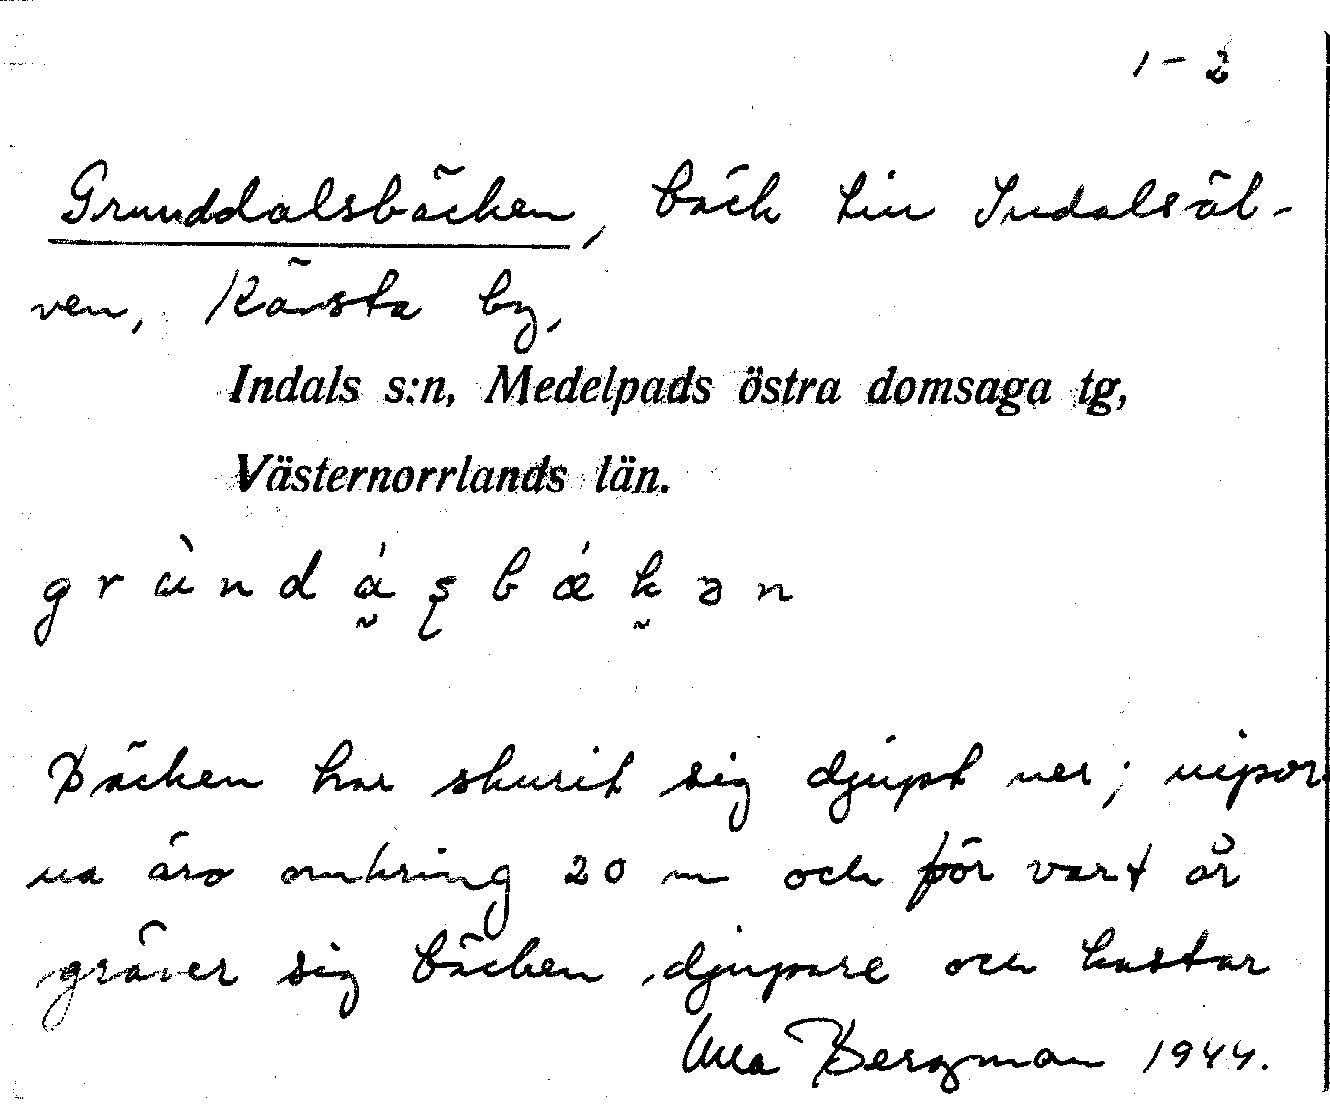 1-2
Grunddalsbäcken, bäck till Indalsäl-
ven, Kävsta by,
Indals s:n, Medelpads östra domsaga tg,
Västernorrlands län.
grùndá̰ʂbǽk̰ən
Bäcken har skurit sig djupt ner; nipor-
na äro omkring 20 m och för vart år
gräver sig bäcken djupare och kastar
Ulla Bergman 1944.